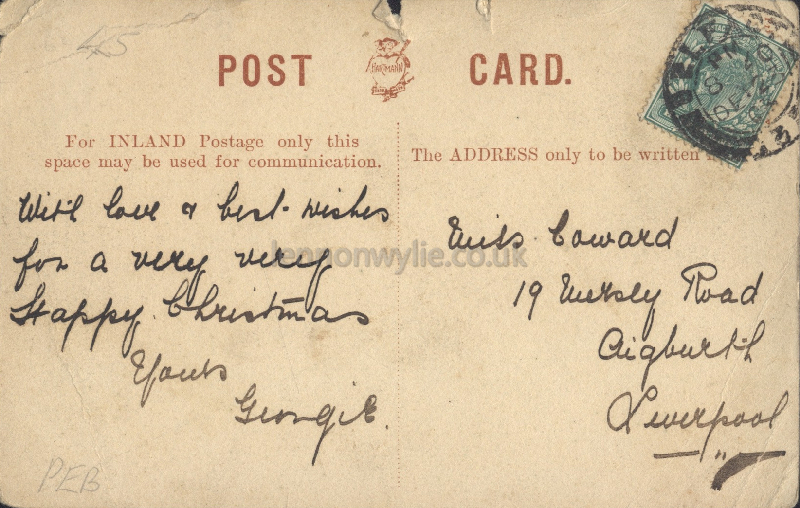 45
POST CARD.
HARTMANN
For INLAND Postage only this
space may be used for communication.
The ADDRESS only to be written
With love & best wishes
for a very very
Happy Christmas
Yours
GeorgiE.
Miss Coward
19 Mersly Road
Aigburth
Liverpool
lennonwylie.co.uk
PEB